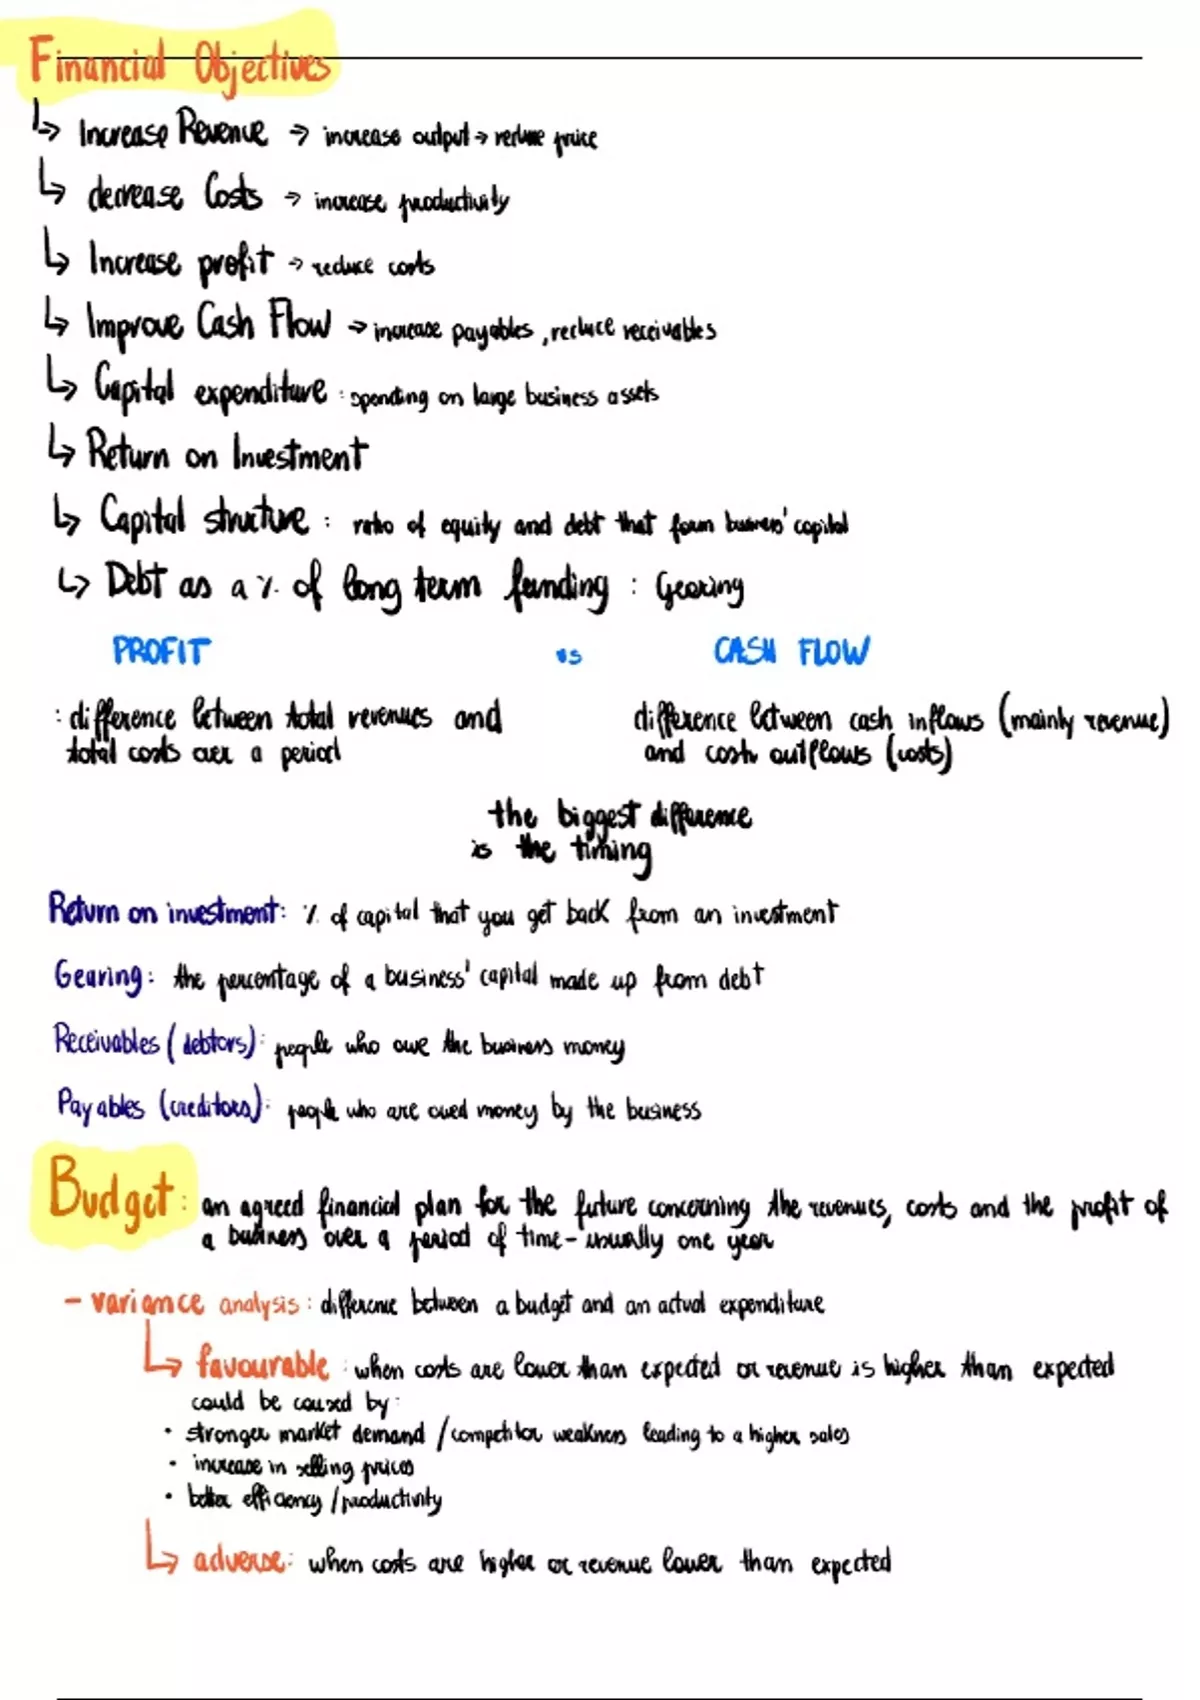 Financial Objectives
↳ Increase Revenue → increase output → reduce price
↳ decrease Costs → increase productivity
↳ Increase profit → reduce costs
↳ Improve Cash Flow → increase payables, reduce receivables
↳ Capital expenditure : spending on large business assets
↳ Return on Investment
↳ Capital structure : ratio of equity and debt that form business' capital
↳ Debt as a % of long term funding : Gearing
PROFIT vs CASH FLOW
: difference between total revenues and
total costs over a period
difference between cash inflows (mainly revenue)
and cash outflows (costs)
the biggest difference
is the timing
Return on investment: % of capital that you get back from an investment
Gearing: the percentage of a business' capital made up from debt
Receivables (debtors): people who owe the business money
Payables (creditors): people who are owed money by the business
Budget: an agreed financial plan for the future concerning the revenues, costs and the profit of
a business over a period of time - usually one year
- variance analysis: difference between a budget and an actual expenditure
↳ favourable : when costs are lower than expected or revenue is higher than expected
could be caused by:
• stronger market demand / competitor weakness leading to a higher sales
• increase in selling prices
• better efficiency / productivity
↳ adverse: when costs are higher or revenue lower than expected